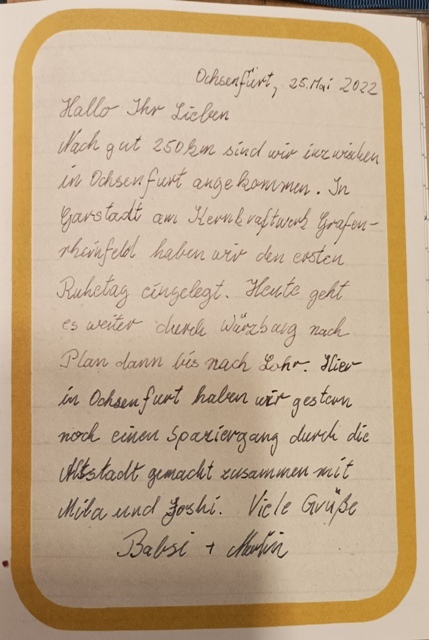 Ochsenfurt, 25. Mai 2022
Hallo Ihr Lieben
Nach gut 250km sind wir inzwischen
in Ochsenfurt angekommen. In
Garstadt am Kernkraftwerk Grafen-
rheinfeld haben wir den ersten
Ruhetag eingelegt. Heute geht
es weiter durch Würzburg nach
Plan dann bis nach Lohr. Hier
in Ochsenfurt haben wir gestern
noch einen Spaziergang durch die
Altstadt gemacht zusammen mit
Mila und Joshi. Viele Grüße
Babsi + Martin